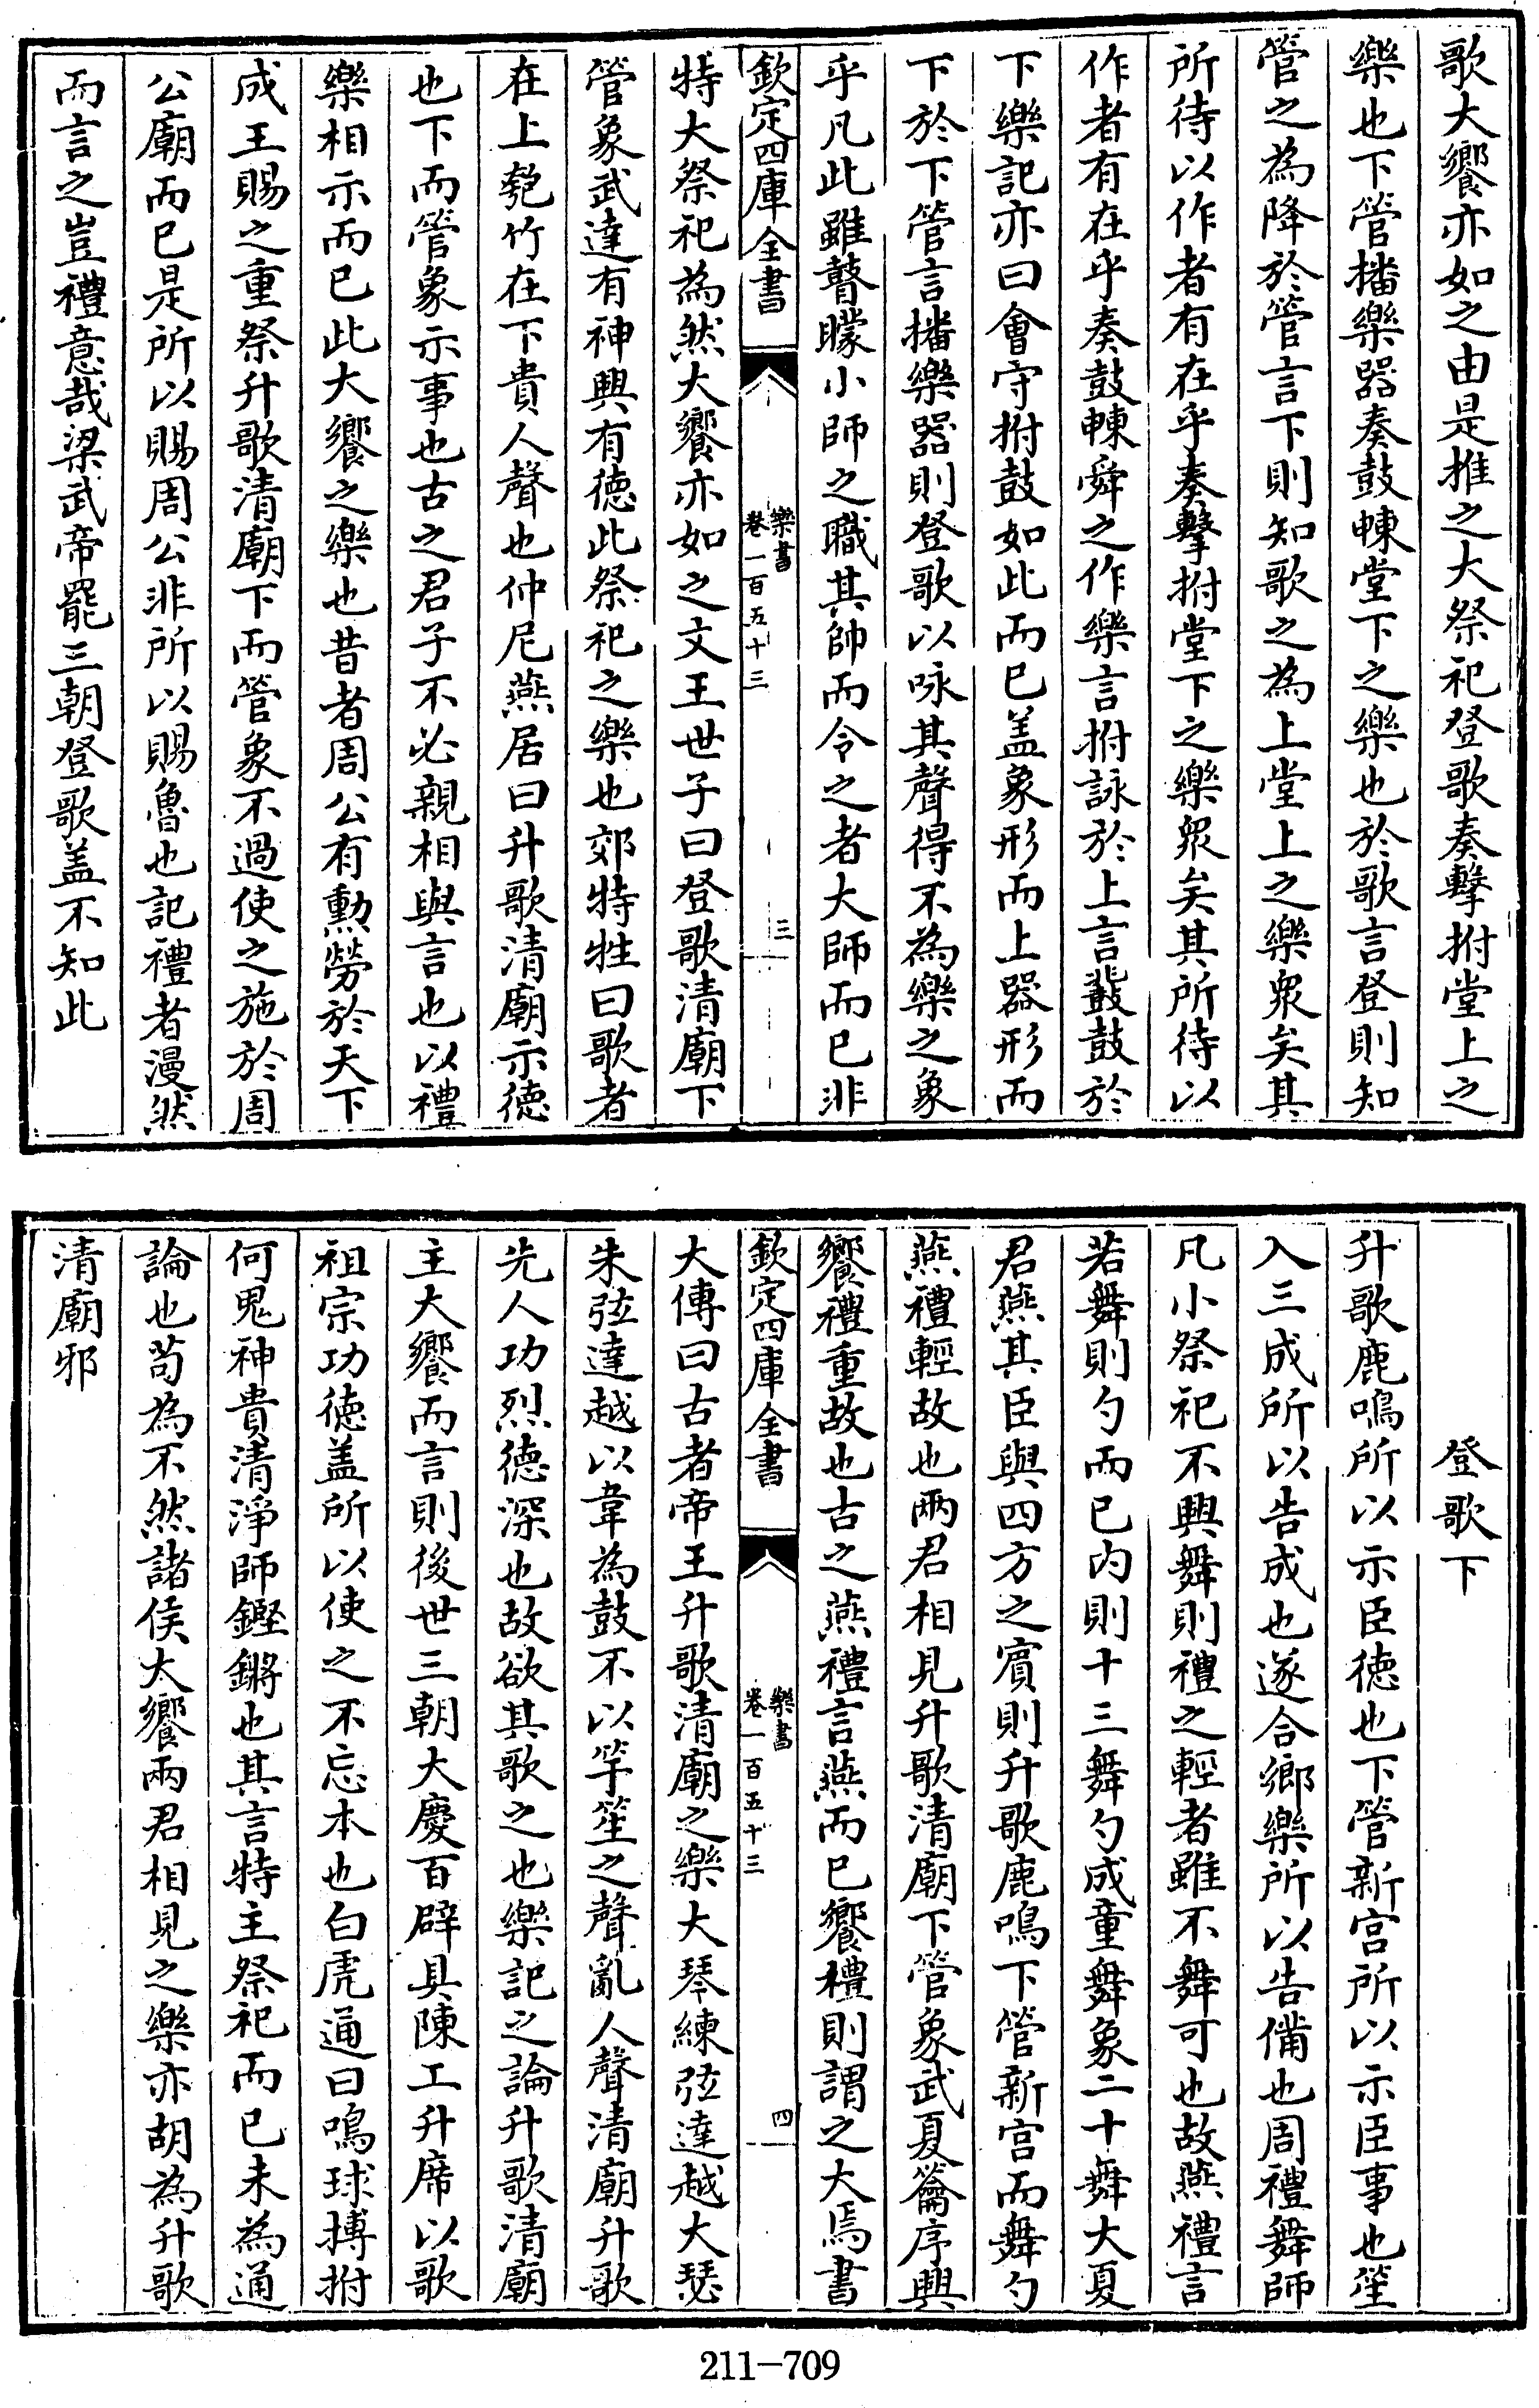 歌大饗亦如之由是推之大祭祀登歌奏擊拊堂上之
樂也下管播樂器奏鼓朄堂下之樂也於歌言登則知
管之為降於管言下則知歌之為上堂上之樂衆矣其
所待以作者有在乎奏擊拊堂下之樂衆矣其所待以
作者有在乎奏鼓朄舜之作樂言拊詠於上言鼗鼓於
下樂記亦曰會守拊鼓如此而已盖象形而上器形而
下於下管言播樂器則登歌以咏其聲得不為樂之象
乎凡此雖瞽矇小師之職其帥而令之者大師而已非
欽定四庫全書
樂書
卷一百五十三
三
特大祭祀為然大饗亦如之文王世子曰登歌清廟下
管象武達有神興有德此祭祀之樂也郊特牲曰歌者
在上匏竹在下貴人聲也仲尼燕居曰升歌清廟示德
也下而管象示事也古之君子不必親相與言也以禮
樂相示而已此大饗之樂也昔者周公有勳勞於天下
成王賜之重祭升歌清廟下而管象不過使之施於周
公廟而已是所以賜周公非所以賜魯也記禮者漫然
而言之豈禮意哉梁武帝罷三朝登歌盖不知此
登歌下
升歌鹿鳴所以示臣德也下管新宫所以示臣事也笙
入三成所以告成也遂合鄉樂所以告備也周禮舞師
凡小祭祀不興舞則禮之輕者雖不舞可也故燕禮言
若舞則勺而已内則十三舞勺成童舞象二十舞大夏
君燕其臣與四方之賓則升歌鹿鳴下管新宫而舞勺
燕禮輕故也兩君相見升歌清廟下管象武夏籥序興
饗禮重故也古之燕禮言燕而已饗禮則謂之大焉書
欽定四庫全書
樂書
卷一百五十三
四
大傳曰古者帝王升歌清廟之樂大琴練弦達越大瑟
朱弦達越以韋為鼓不以竽笙之聲亂人聲清廟升歌
先人功烈德深也故欲其歌之也樂記之論升歌清廟
主大饗而言則後世三朝大慶百辟具陳工升席以歌
祖宗功德盖所以使之不忘本也白虎通曰鳴球搏拊
何鬼神貴清淨師鏗鏘也其言特主祭祀而已未為通
論也苟為不然諸侯大饗兩君相見之樂亦胡為升歌
清廟邪
211-709